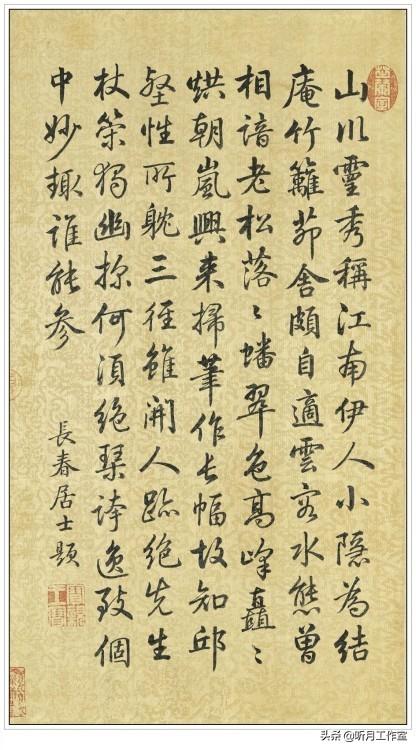 山川靈秀稱江南伊人小隱為結
庵竹籬茆舍頗自適雲容水態曾
相諳老松落〻蟠翠色高峰矗〻
烘朝嵐興來掃筆作長幅故知邱
壑性所躭三徑雖開人跡絕先生
杖策獨幽探何須絕琴誇逸致個
中妙趣誰能參
長春居士題
头条 @听月工作室